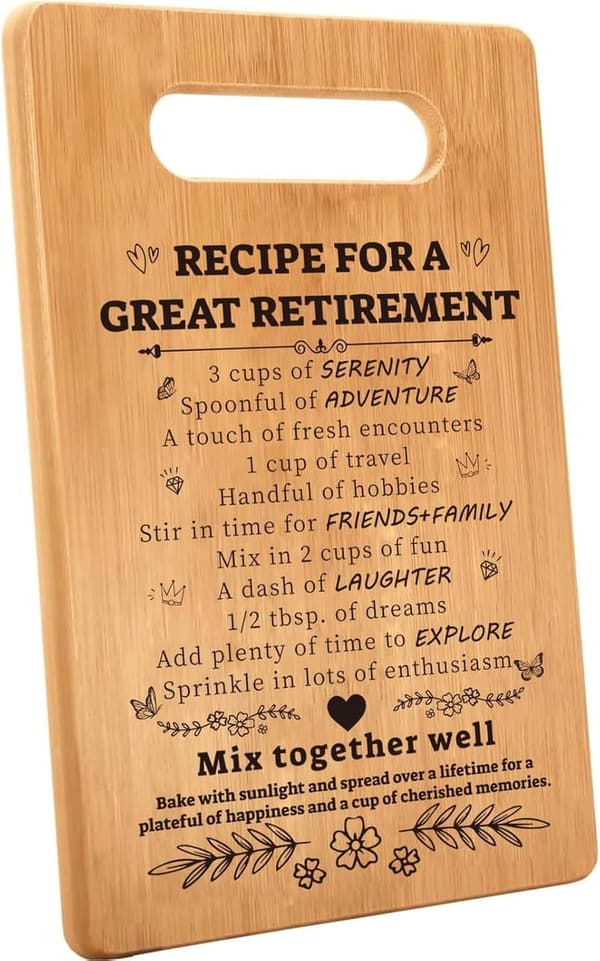 RECIPE FOR A
GREAT RETIREMENT
3 cups of SERENITY
Spoonful of ADVENTURE
A touch of fresh encounters
1 cup of travel
Handful of hobbies
Stir in time for FRIENDS+FAMILY
Mix in 2 cups of fun
A dash of LAUGHTER
1/2 tbsp. of dreams
Add plenty of time to EXPLORE
Sprinkle in lots of enthusiasm
Mix together well
Bake with sunlight and spread over a lifetime for a
plateful of happiness and a cup of cherished memories.